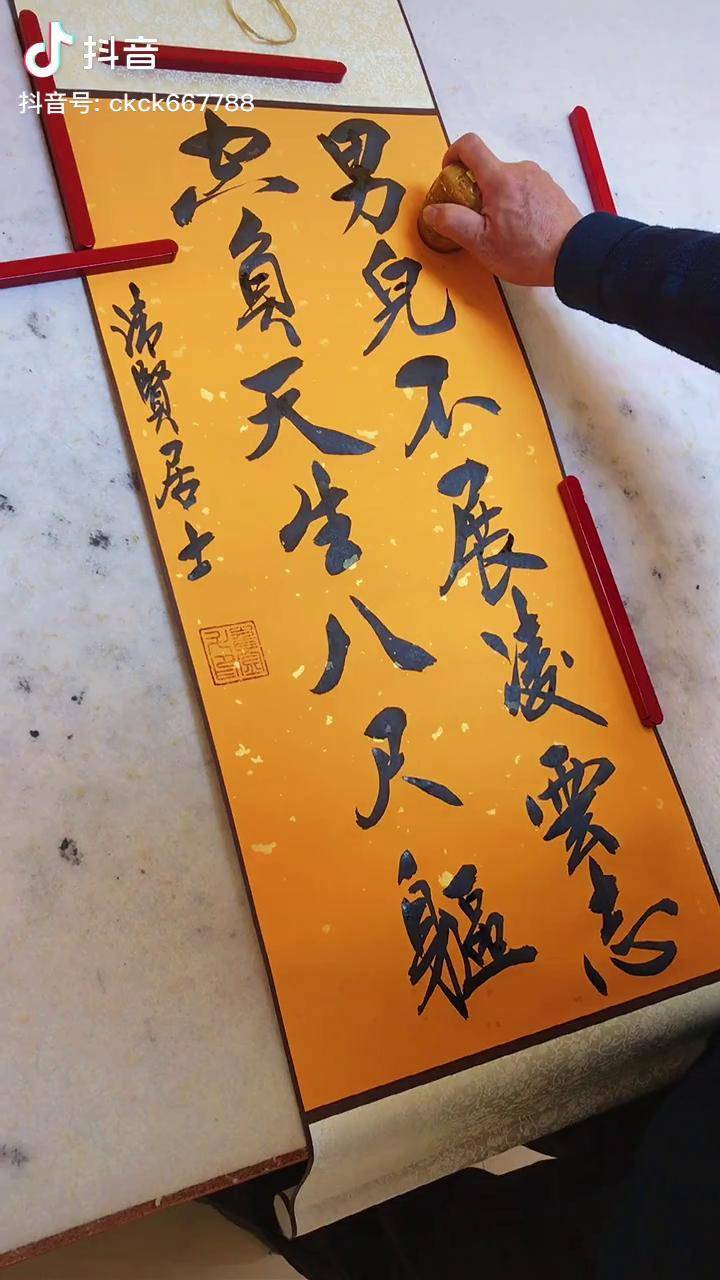 抖音
抖音号: ckck667788
男兒不展凌雲志
空負天生八尺軀
清賢居士